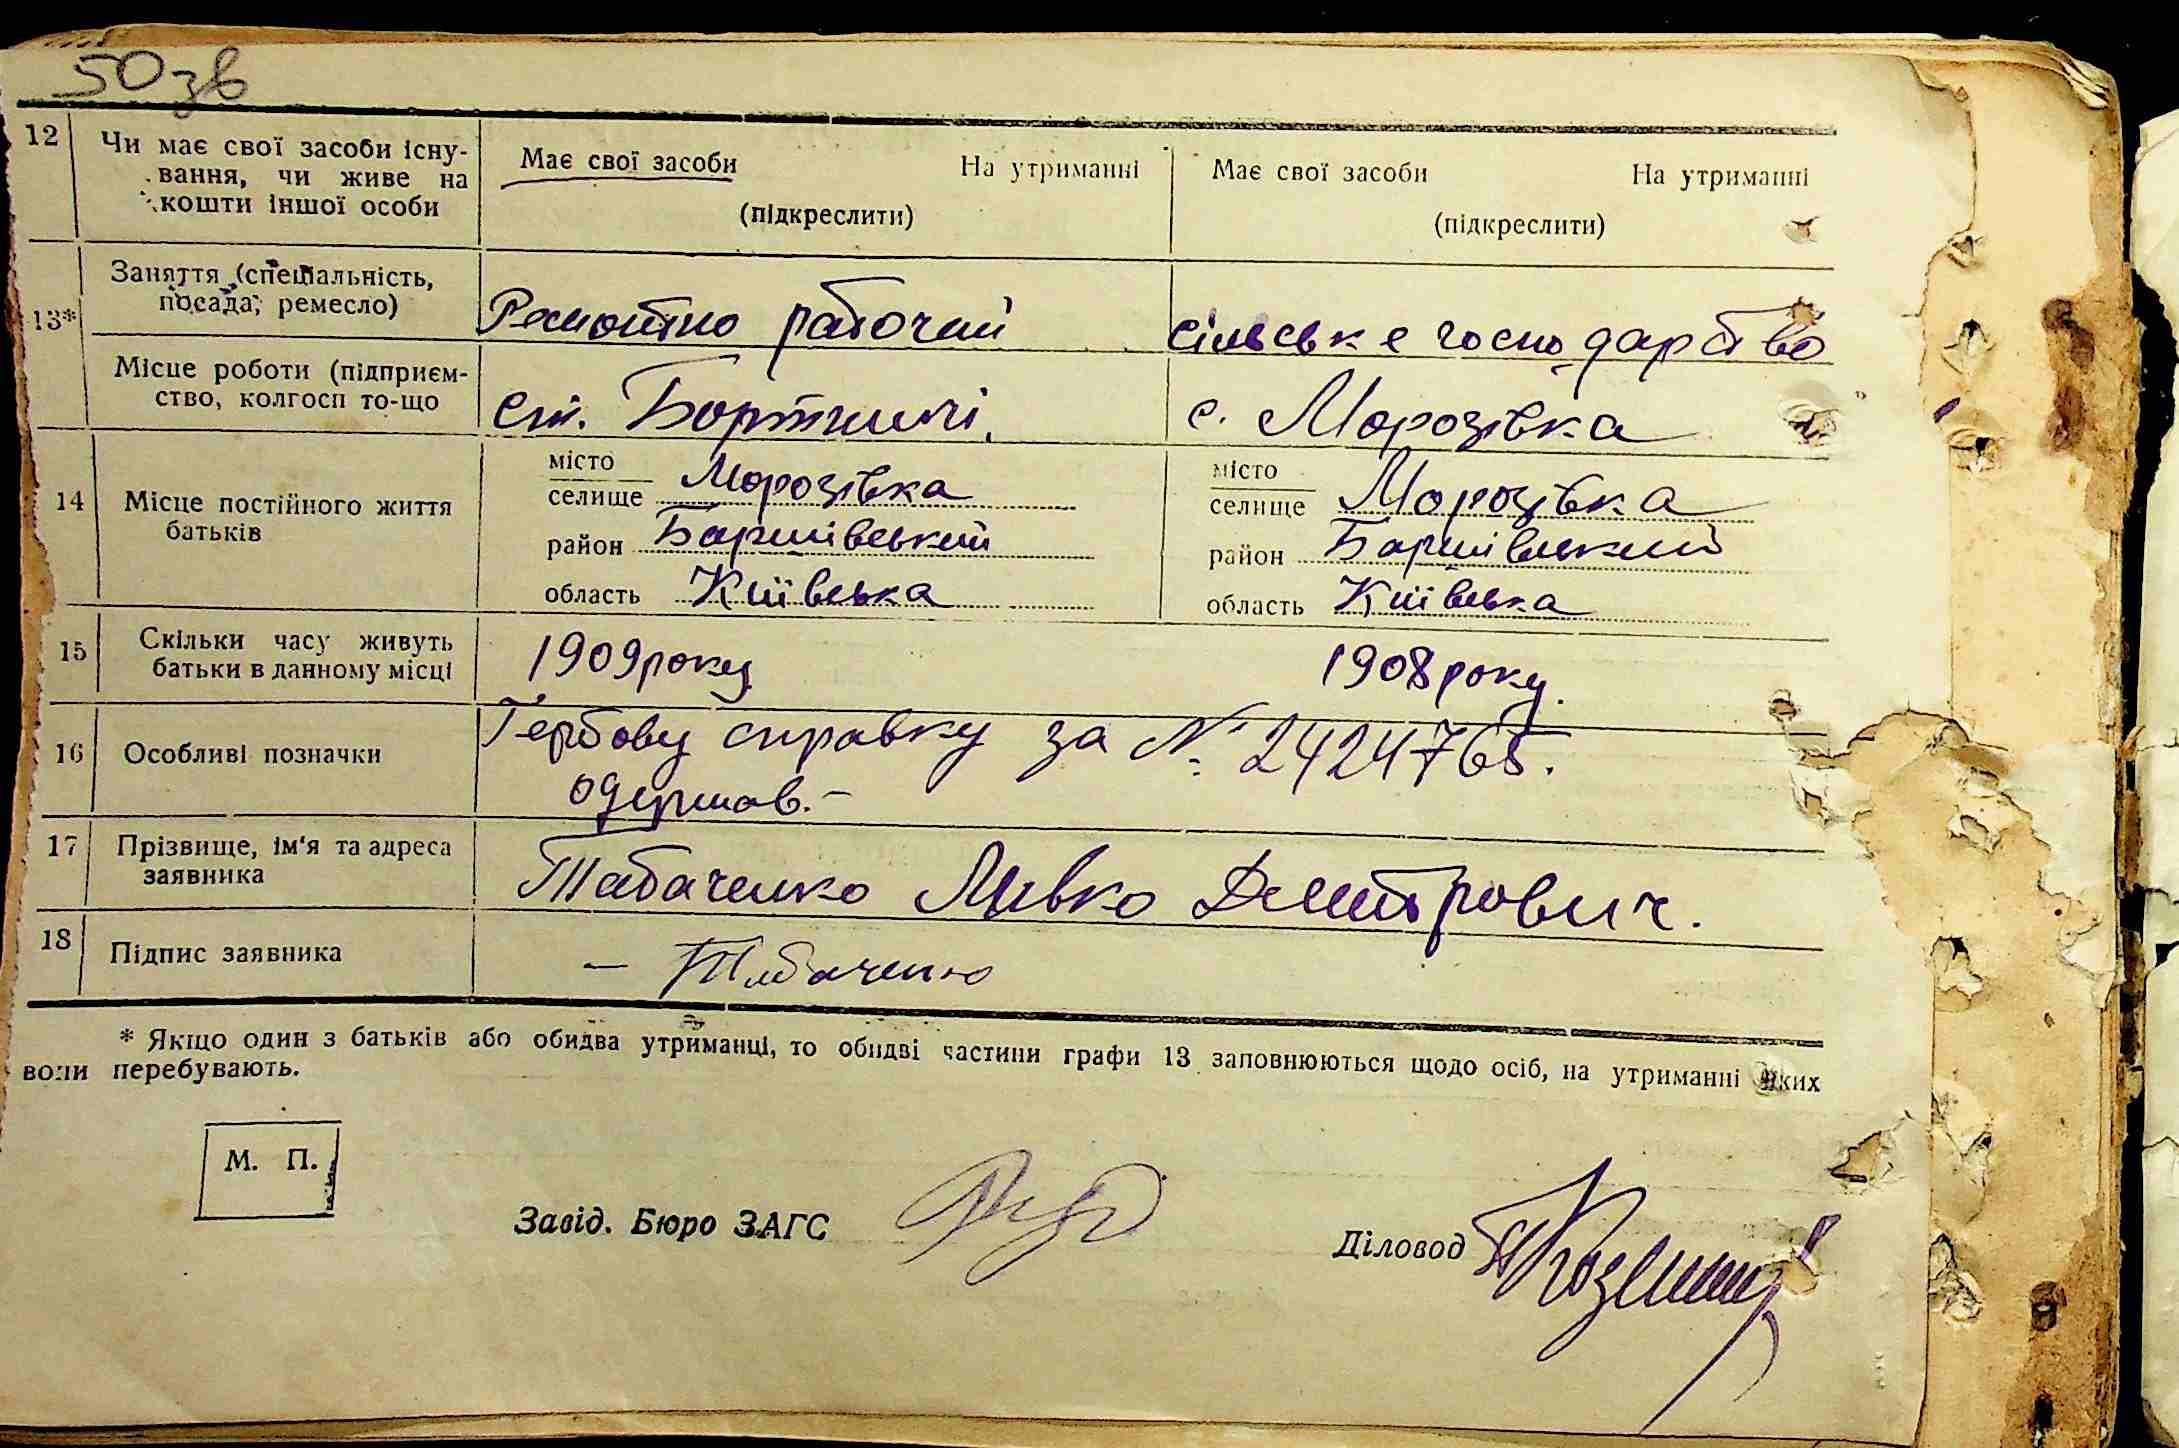 50 зв
12 Чи має свої засоби існу-
вання, чи живе на
кошти іншої особи
Має свої засоби На утриманні
(підкреслити)
Має свої засоби На утриманні
(підкреслити)
13* Заняття (спеціальність,
посада, ремесло)
Ремонтно рабочий
сільське господарство
Місце роботи (підприєм-
ство, колгосп то-що
ст. Бортничі.
с. Морозівка
14 Місце постійного життя
батьків
місто
селище Морозівка
район Баришівський
область Київська
місто
селище Морозівка
район Баришівський
область Київська
15 Скільки часу живуть
батьки в данному місці
1909 року
1908 року.
16 Особливі позначки
Гербову справку за № 2424765.
одержав.-
17 Прізвище, ім'я та адреса
заявника
Табаченко Левко Дмитрович.
18 Підпис заявника
— Табаченко
* Якщо один з батьків або обидва утриманці, то обидві частини графи 13 заповнюються щодо осіб, на утриманні яких
вони перебувають.
М. П.
Завід. Бюро ЗАГС
Діловод